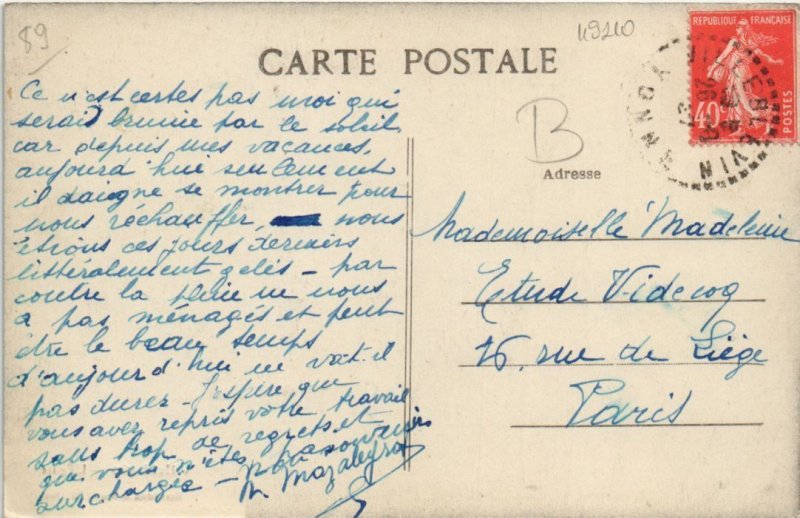 89
49210
CARTE POSTALE
REPUBLIQUE FRANÇAISE
40c
POSTES
B
Adresse
Ce n'est certes pas moi qui
serais brunie par le soleil,
car depuis mes vacances,
aujourd'hui seulement
il daigne se montrer pour
nous réchauffer, nous
étions ces jours derniers
littéralement gelés - par
contre la pluie ne nous
a pas ménagés et peut
être le beau temps
d'aujourd'hui ne va-t-il
pas durer - J'espère que
vous avez repris votre travail
sans trop de regrets et
que vous n'êtes pas
surchargée -
souvenirs
Mademoiselle Madeleine
Etude Videcoq
26, rue de Liège
Paris